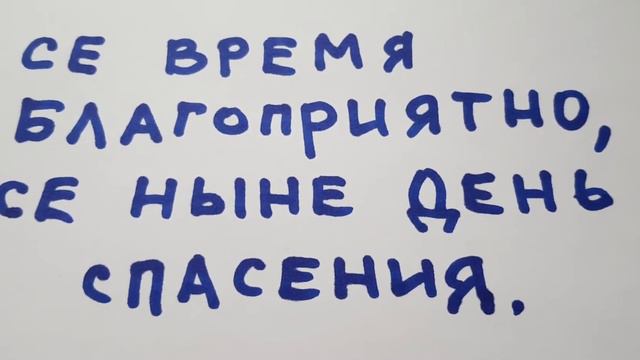 СЕ ВРЕМЯ
БЛАГОПРИЯТНО,
СЕ НЫНЕ ДЕНЬ
СПАСЕНИЯ.